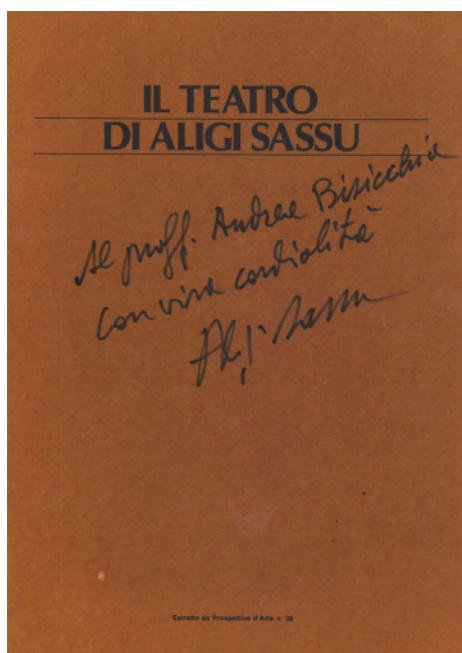 IL TEATRO
DI ALIGI SASSU
Al proff. Andrea Bisicchia
con viva cordialità
Aligi Sassu
Estratto da Prospettive d'Arte n. 38